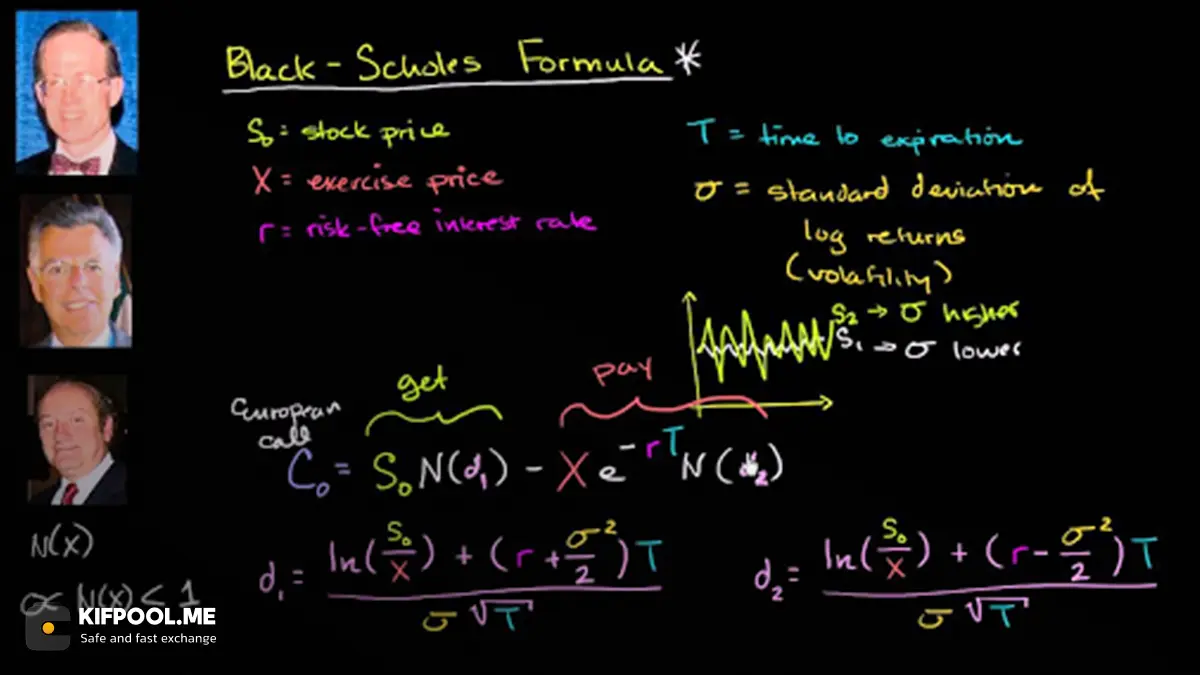 Black-Scholes Formula *
S₀ = stock price
X = exercise price
r = risk-free interest rate
T = time to expiration
σ = standard deviation of
log returns
(volatility)
S₂ → σ higher
S₁ → σ lower
get
pay
European
call
C₀ = S₀ N(d₁) - X e^(-rT) N(d₂)
d₁ = (ln(S₀/X) + (r + σ²/2)T) / (σ√T)
d₂ = (ln(S₀/X) + (r - σ²/2)T) / (σ√T)
N(x)
N(x) < 1
KIFPOOL.ME
Safe and fast exchange